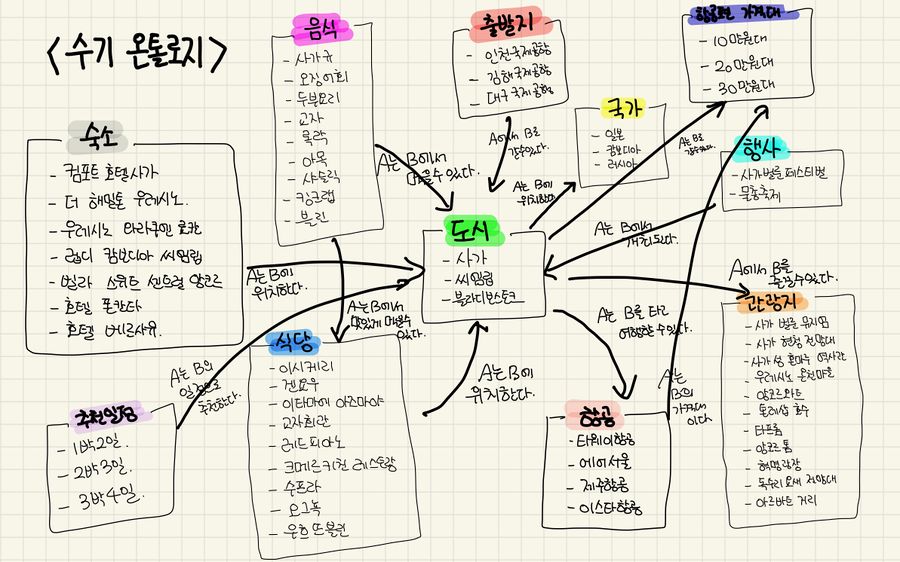 <수기 온톨로지>
음식
- 사가규
- 오징어회
- 두부요리
- 교자
- 록락
- 아목
- 샤슬릭
- 킹크랩
- 블린
출발지
- 인천국제공항
- 김해국제공항
- 대구국제공항
항공편 가격대
- 10만원대
- 20만원대
- 30만원대
국가
- 일본
- 캄보디아
- 러시아
행사
- 사가벌룬페스티벌
- 물총축제
숙소
- 컴포트 호텔사가
- 더 해밀톤 우레시노.
- 우레시노 와라쿠엔 료칸
- 골디 캄보디아 씨엠립
- 빌라 스위트 센트럴 앙코르
- 호텔 폰탄타
- 호텔 베르사유.
도시
- 사가
- 씨엠립
- 블라디보스토크
식당
- 이시케리
- 겐요우
- 이타마에 아즈마야
- 교자회관
- 레드피아노
- 크메르키친 레스토랑
- 수프라
- 오그녹
- 우흐뜨블린
추천일정
- 1박2일.
- 2박3일.
- 3박4일.
항공
- 티웨이항공
- 에어서울
- 제주항공
- 이스타항공
관광지
- 사가 벌룬 뮤지엄
- 사가 현청 전망대
- 사가성 혼마루 역사관
- 우레시노 온천마을
- 앙코르와트
- 톤레삽 호수
- 타프롬
- 앙코르 톰
- 혁명광장
- 독수리요새 전망대
- 아르바트 거리
A는 B에서
먹을수있다.
A에서 B로
갈수있다.
A는 B에
위치한다
A는 B로
갈수있다.
A는 B에서
개최된다.
A에서 B를
즐길수있다.
A는 B에
위치한다.
A는 B에서
맛있게 먹을수
있다.
A는 B를 타고
여행할 수있다.
A는 B의
일정으로
추천한다.
A는 B에
위치한다.
A는
B의
가격대
이다.